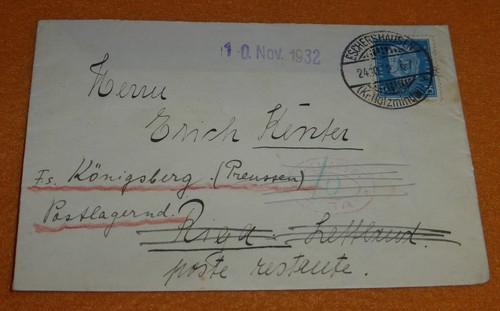 10. Nov. 1932
ESCHERSHAUSEN
24.10.
(Kr. Holzminden)
Herrn
Erich Kenter
Fs. Königsberg. (Preussen)
Postlagernd.
Riga. Lettland.
poste restante.